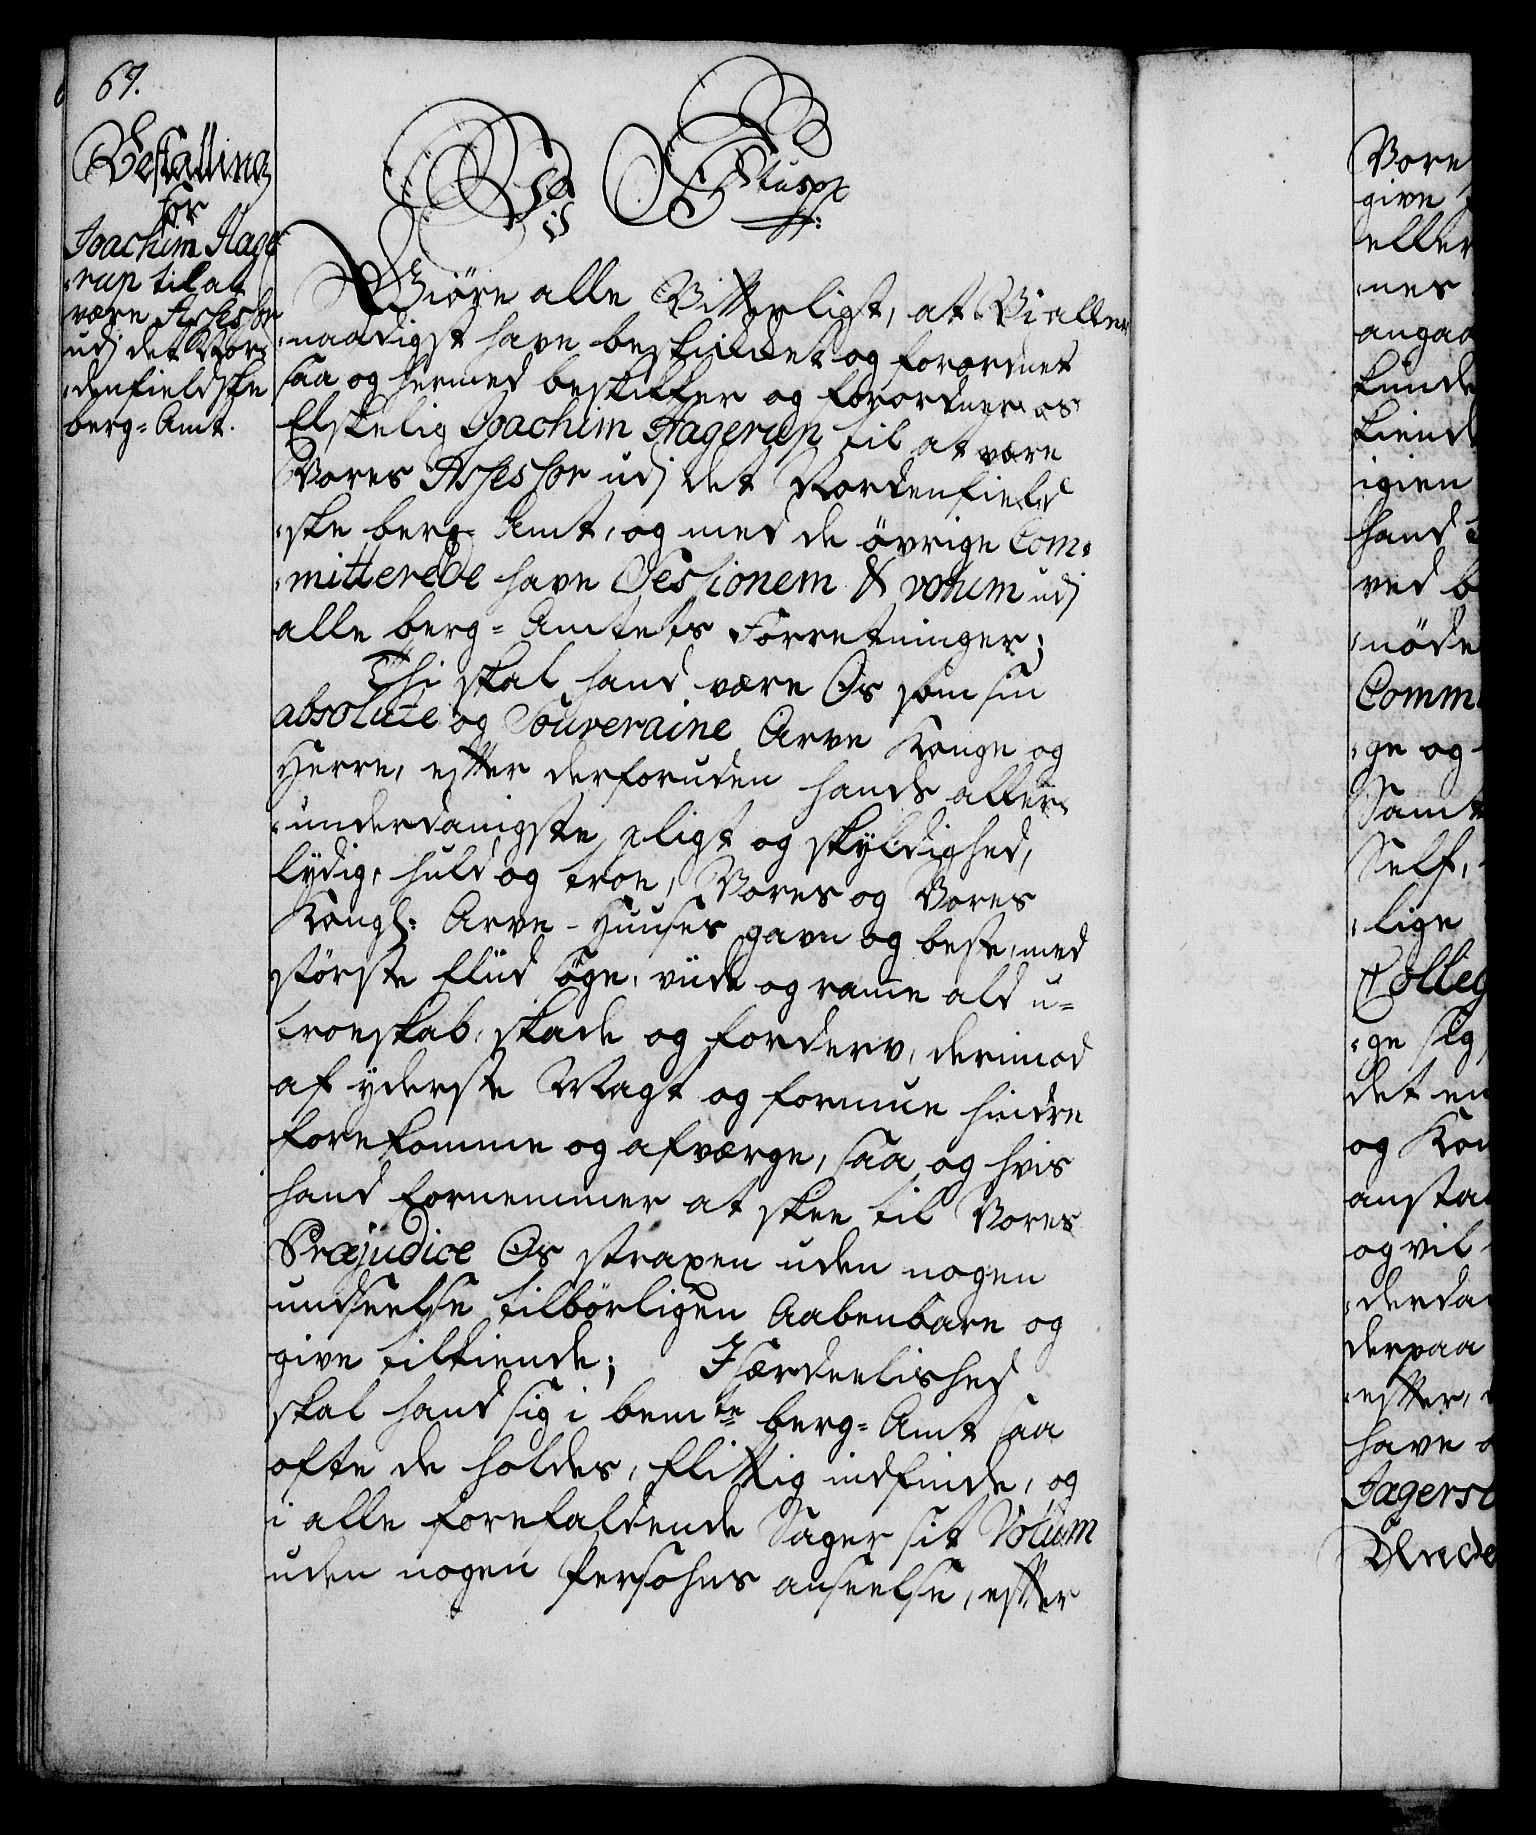 67.
Bestalling
for
Joachim Hage
-rup til at
være Assessor
udj det Nor-
-denfieldske
berg-Amt.
Giöre alle Vitterligt, at Vi aller-
-naadigst have beskikket og forordnet
saa og hermed beskikker og forordner os
Elskelig Joachim Hagerup til at være
Vores Assessor udj det Nordenfield
-ske berg-Amt, og med de øvrige Com-
-mitterede have Sessionem & votum udj
alle berg-Amtets Forretninger;
Thi skal hand være Os som sin
absolute og Souveraine Arve Konge og
Herre, efter derforuden hands aller-
-underdanigste pligt og skyldighed,
lydig, huld og troe, Vores og Vores
Kongl: Arve-Huuses gavn og beste, med
største fliid søge, viide og ramme ald u-
troeskab, skade og forderv, derimod
af yderste Magt og formue hindre
forekomme og afværge, saa og hvis
hand fornemmer at skee til Vores
Præjudice Os straxen uden nogen
undseelse tilbørligen Aabenbare og
give tilkiende; Isærdeelished
skal hand sig i bemte berg-Amt saa
ofte de holdes, flittig indfinde, og
i alle forefaldende Sager sit Votum
uden nogen Persohns anseelse, efter
Vore
give
eller
-nes
angaa
kunde
kiend
igien
hand
ved b
-nøde
Comm
-ge og
Samt
Self,
-lige
Colleg
-ge sig
det em
og Kon
ansta
og vil
-derda
derpaa
-efter,
have
Jagersb